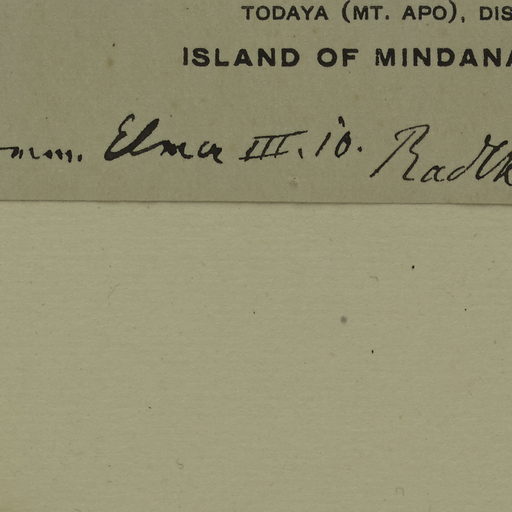 TODAYA (MT. APO), DIS
ISLAND OF MINDANA
mm. Elmer III. 10. Radlk